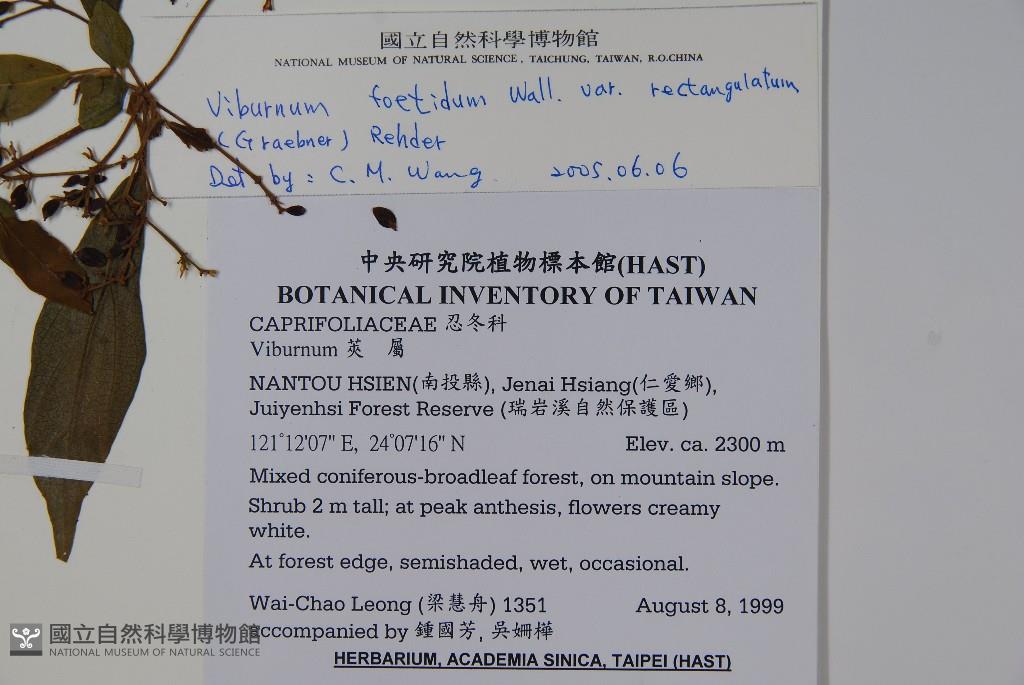 國立自然科學博物館
NATIONAL MUSEUM OF NATURAL SCIENCE, TAICHUNG, TAIWAN, R.O.CHINA
Viburnum foetidum Wall. var. rectangulatum
(Graebner) Rehder
Det by : C. M. Wang 2005.06.06
中央研究院植物標本館(HAST)
BOTANICAL INVENTORY OF TAIWAN
CAPRIFOLIACEAE 忍冬科
Viburnum 莢 屬
NANTOU HSIEN(南投縣), Jenai Hsiang(仁愛鄉),
Juiyenhsi Forest Reserve (瑞岩溪自然保護區)
121°12'07" E, 24°07'16" N Elev. ca. 2300 m
Mixed coniferous-broadleaf forest, on mountain slope.
Shrub 2 m tall; at peak anthesis, flowers creamy
white.
At forest edge, semishaded, wet, occasional.
Wai-Chao Leong (梁慧舟) 1351 August 8, 1999
accompanied by 鍾國芳, 吳姍樺
HERBARIUM, ACADEMIA SINICA, TAIPEI (HAST)
國立自然科學博物館
NATIONAL MUSEUM OF NATURAL SCIENCE